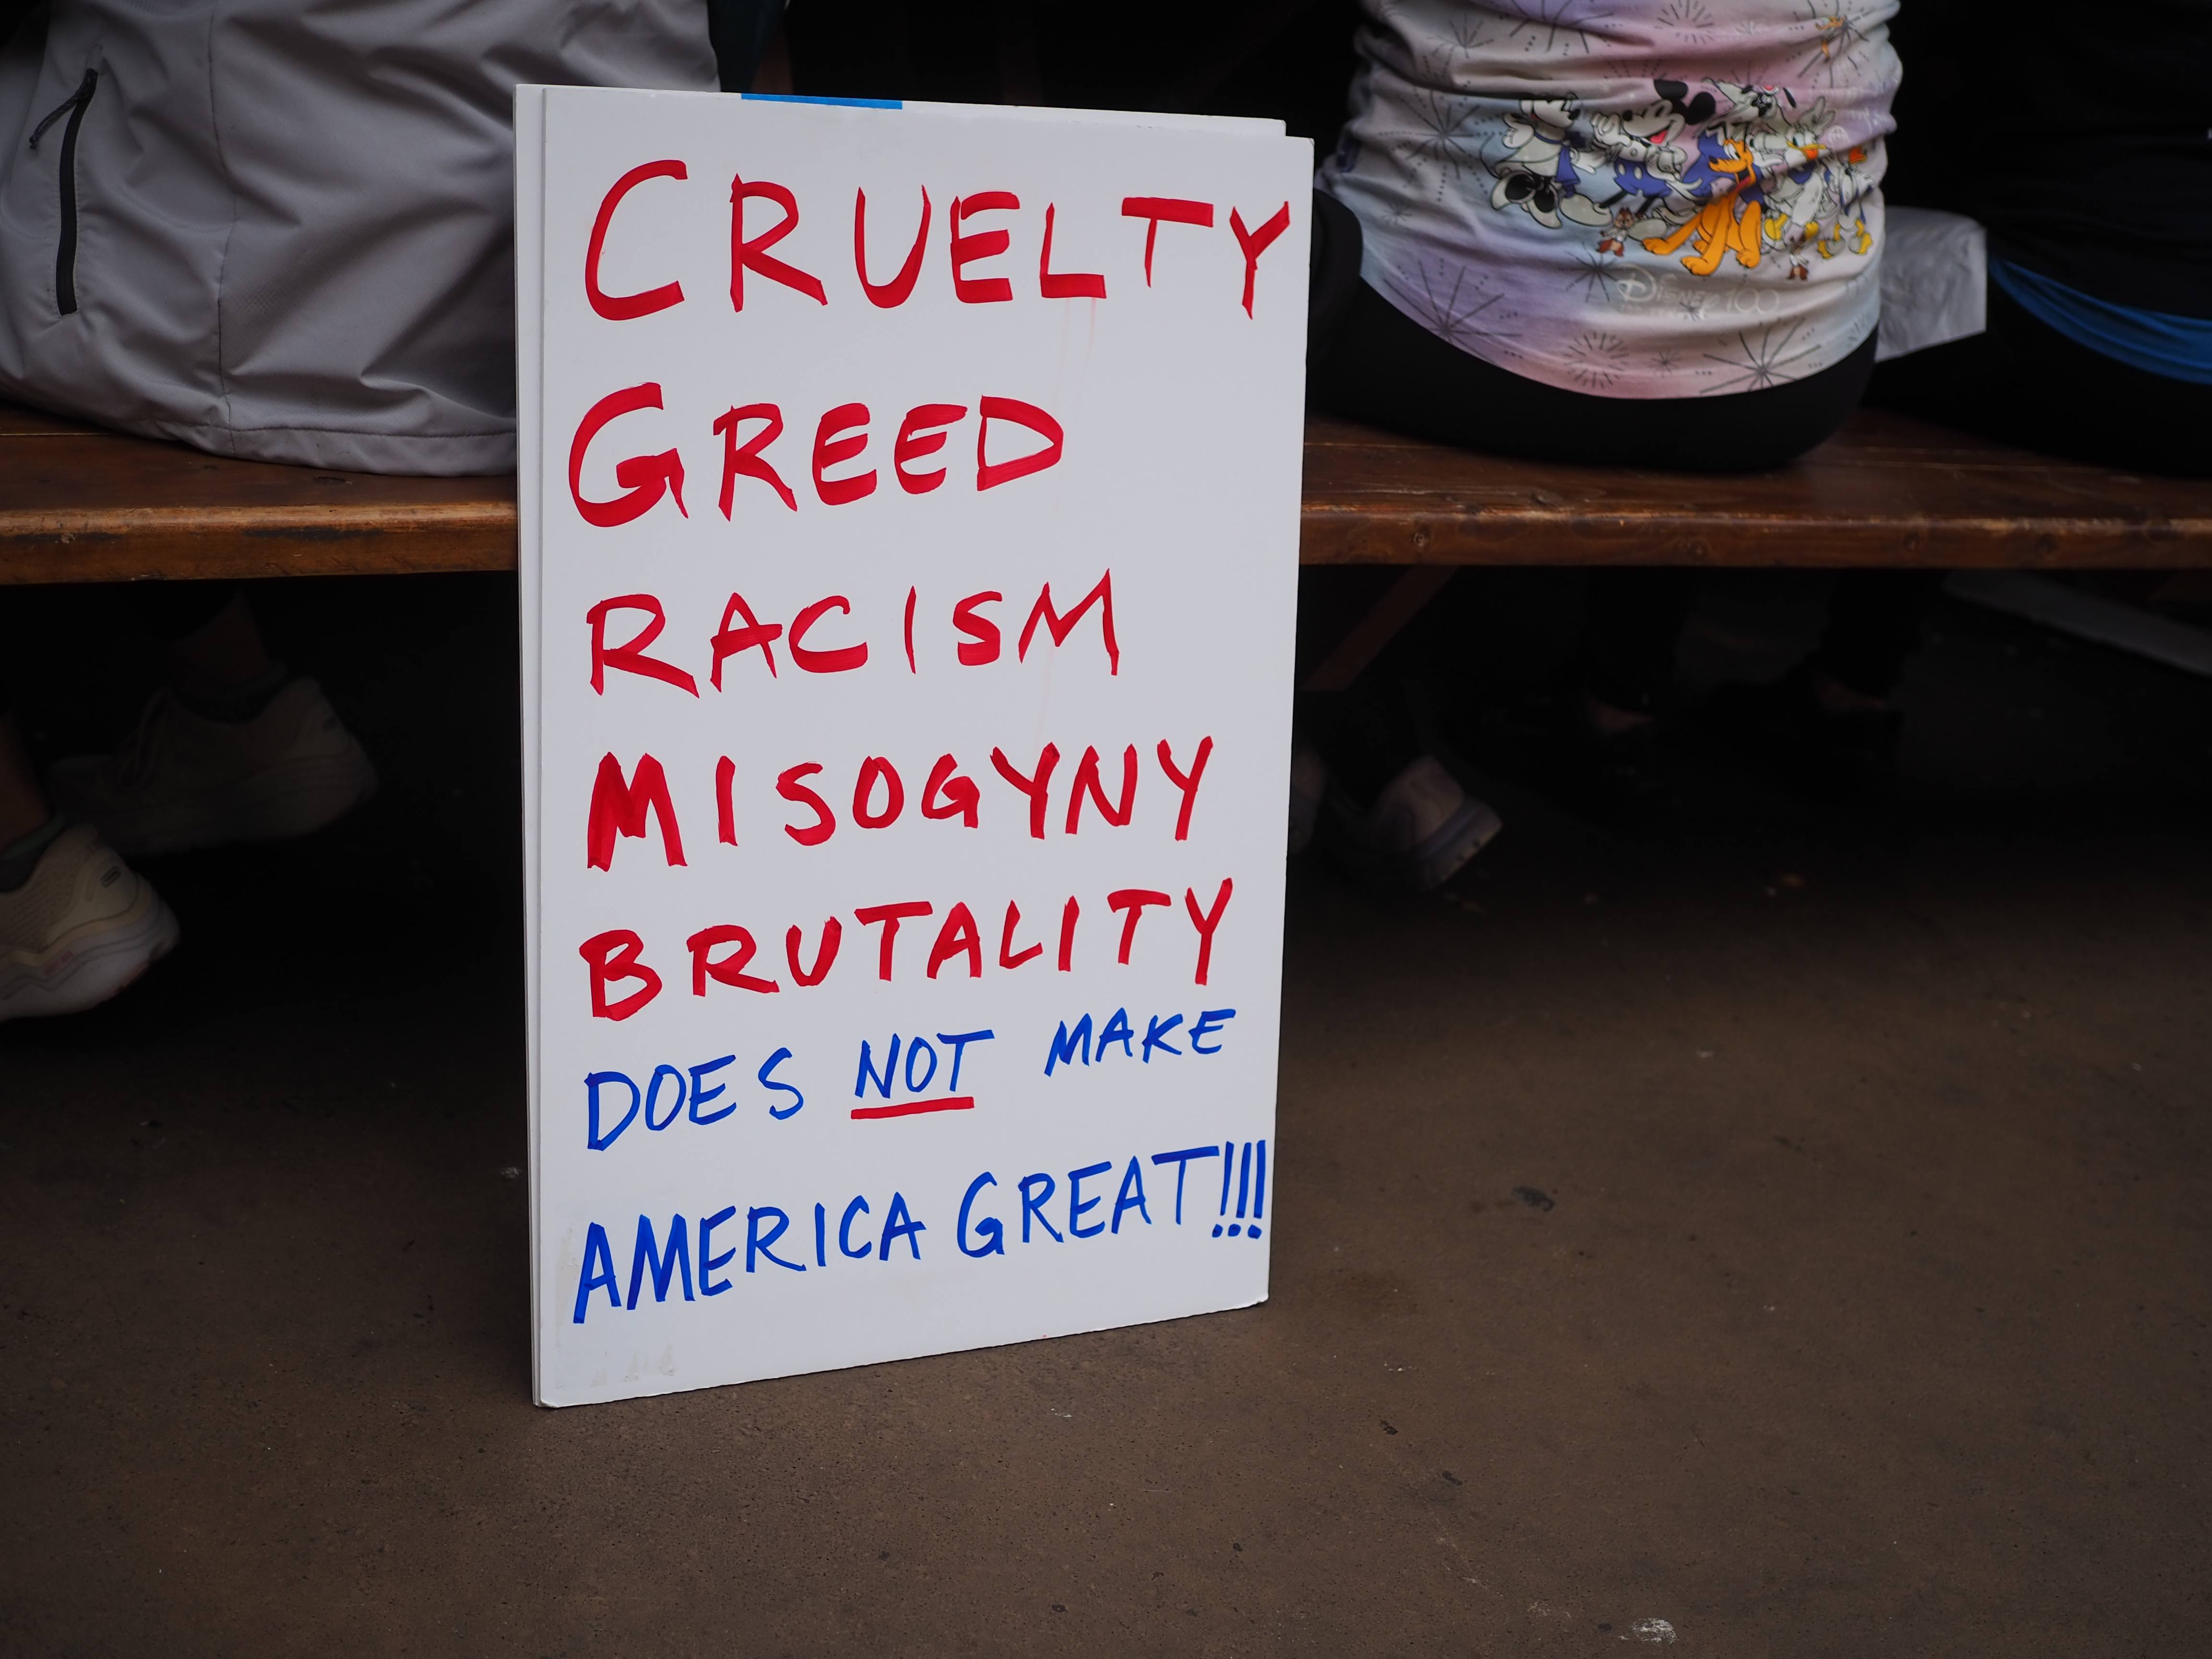 CRUELTY
GREED
RACISM
MISOGYNY
BRUTALITY
DOES NOT MAKE
AMERICA GREAT!!!
DISNEY 100